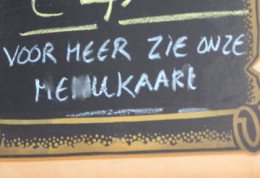 VOOR MEER ZIE ONZE
MENUKAART